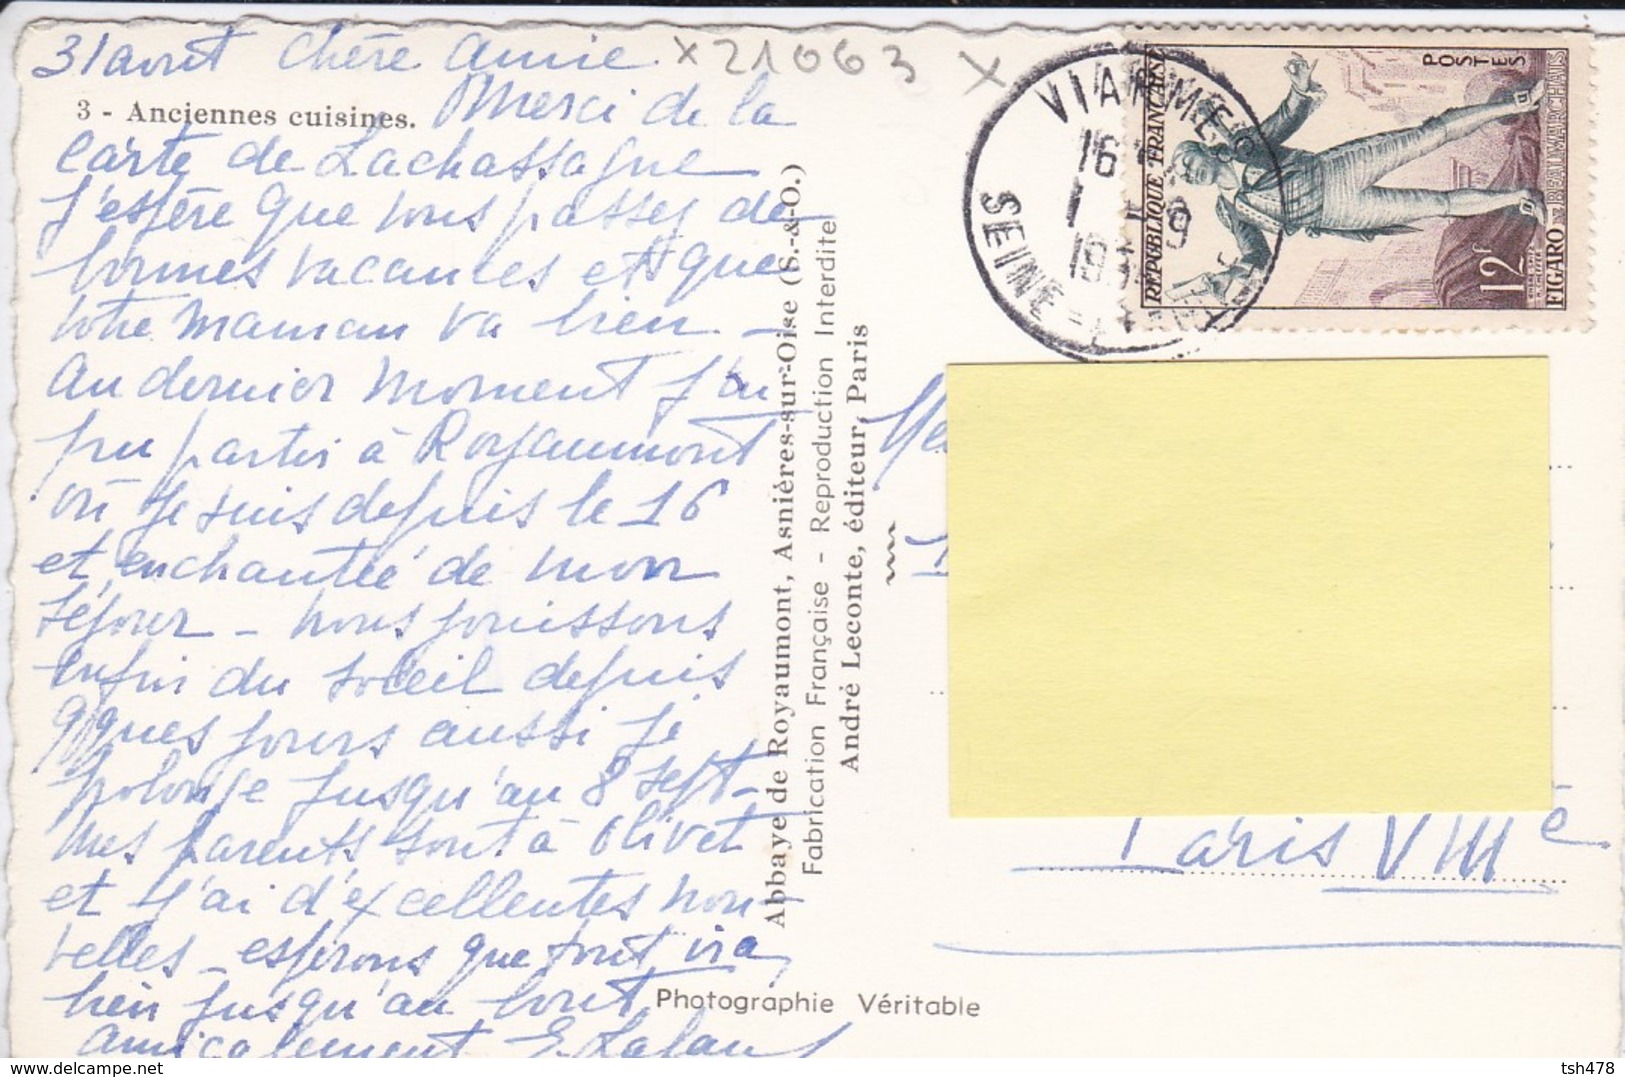 31 aout Chère Amie
× 21063 ×
3 - Anciennes cuisines.
Merci de la
Carte de Lachassagne
J'espère que vous passez de
bonnes vacances et que
votre maman va bien -
Au dernier moment j'ai
pu partir à Royaumont
où je suis depuis le 16
et enchantée de mon
séjour - nous jouissons
enfin du soleil depuis
qques jours aussi je
prolonge jusqu'au 8 sept -
mes parents sont à Olivet
et j'ai d'excellentes nou-
velles - espérons que tout ira
bien jusqu'au bout
amicalement
Abbaye de Royaumont, Asnières-sur-Oise (S.-&-O.)
Fabrication Française - Reproduction Interdite
André Leconte, éditeur, Paris
Photographie Véritable
VIARMES
16
SEINE-
POSTES
REPUBLIQUE FRANÇAISE
12F
FIGARO DE BEAUMARCHAIS
Paris VIIIe
tsh478